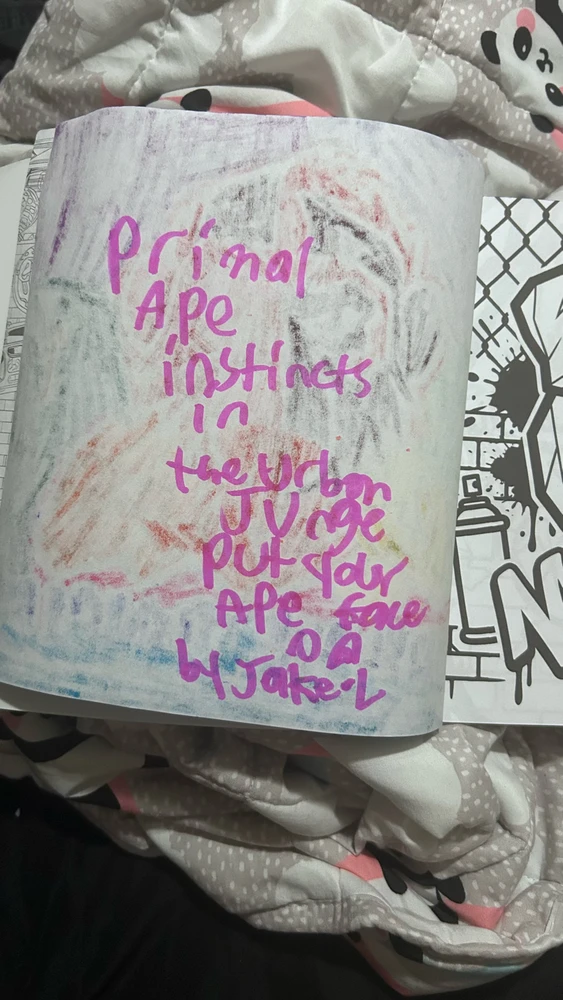 Primal
Ape
instincts
in
the urban
JUnge
Put your
APe face
On
by Jake-L